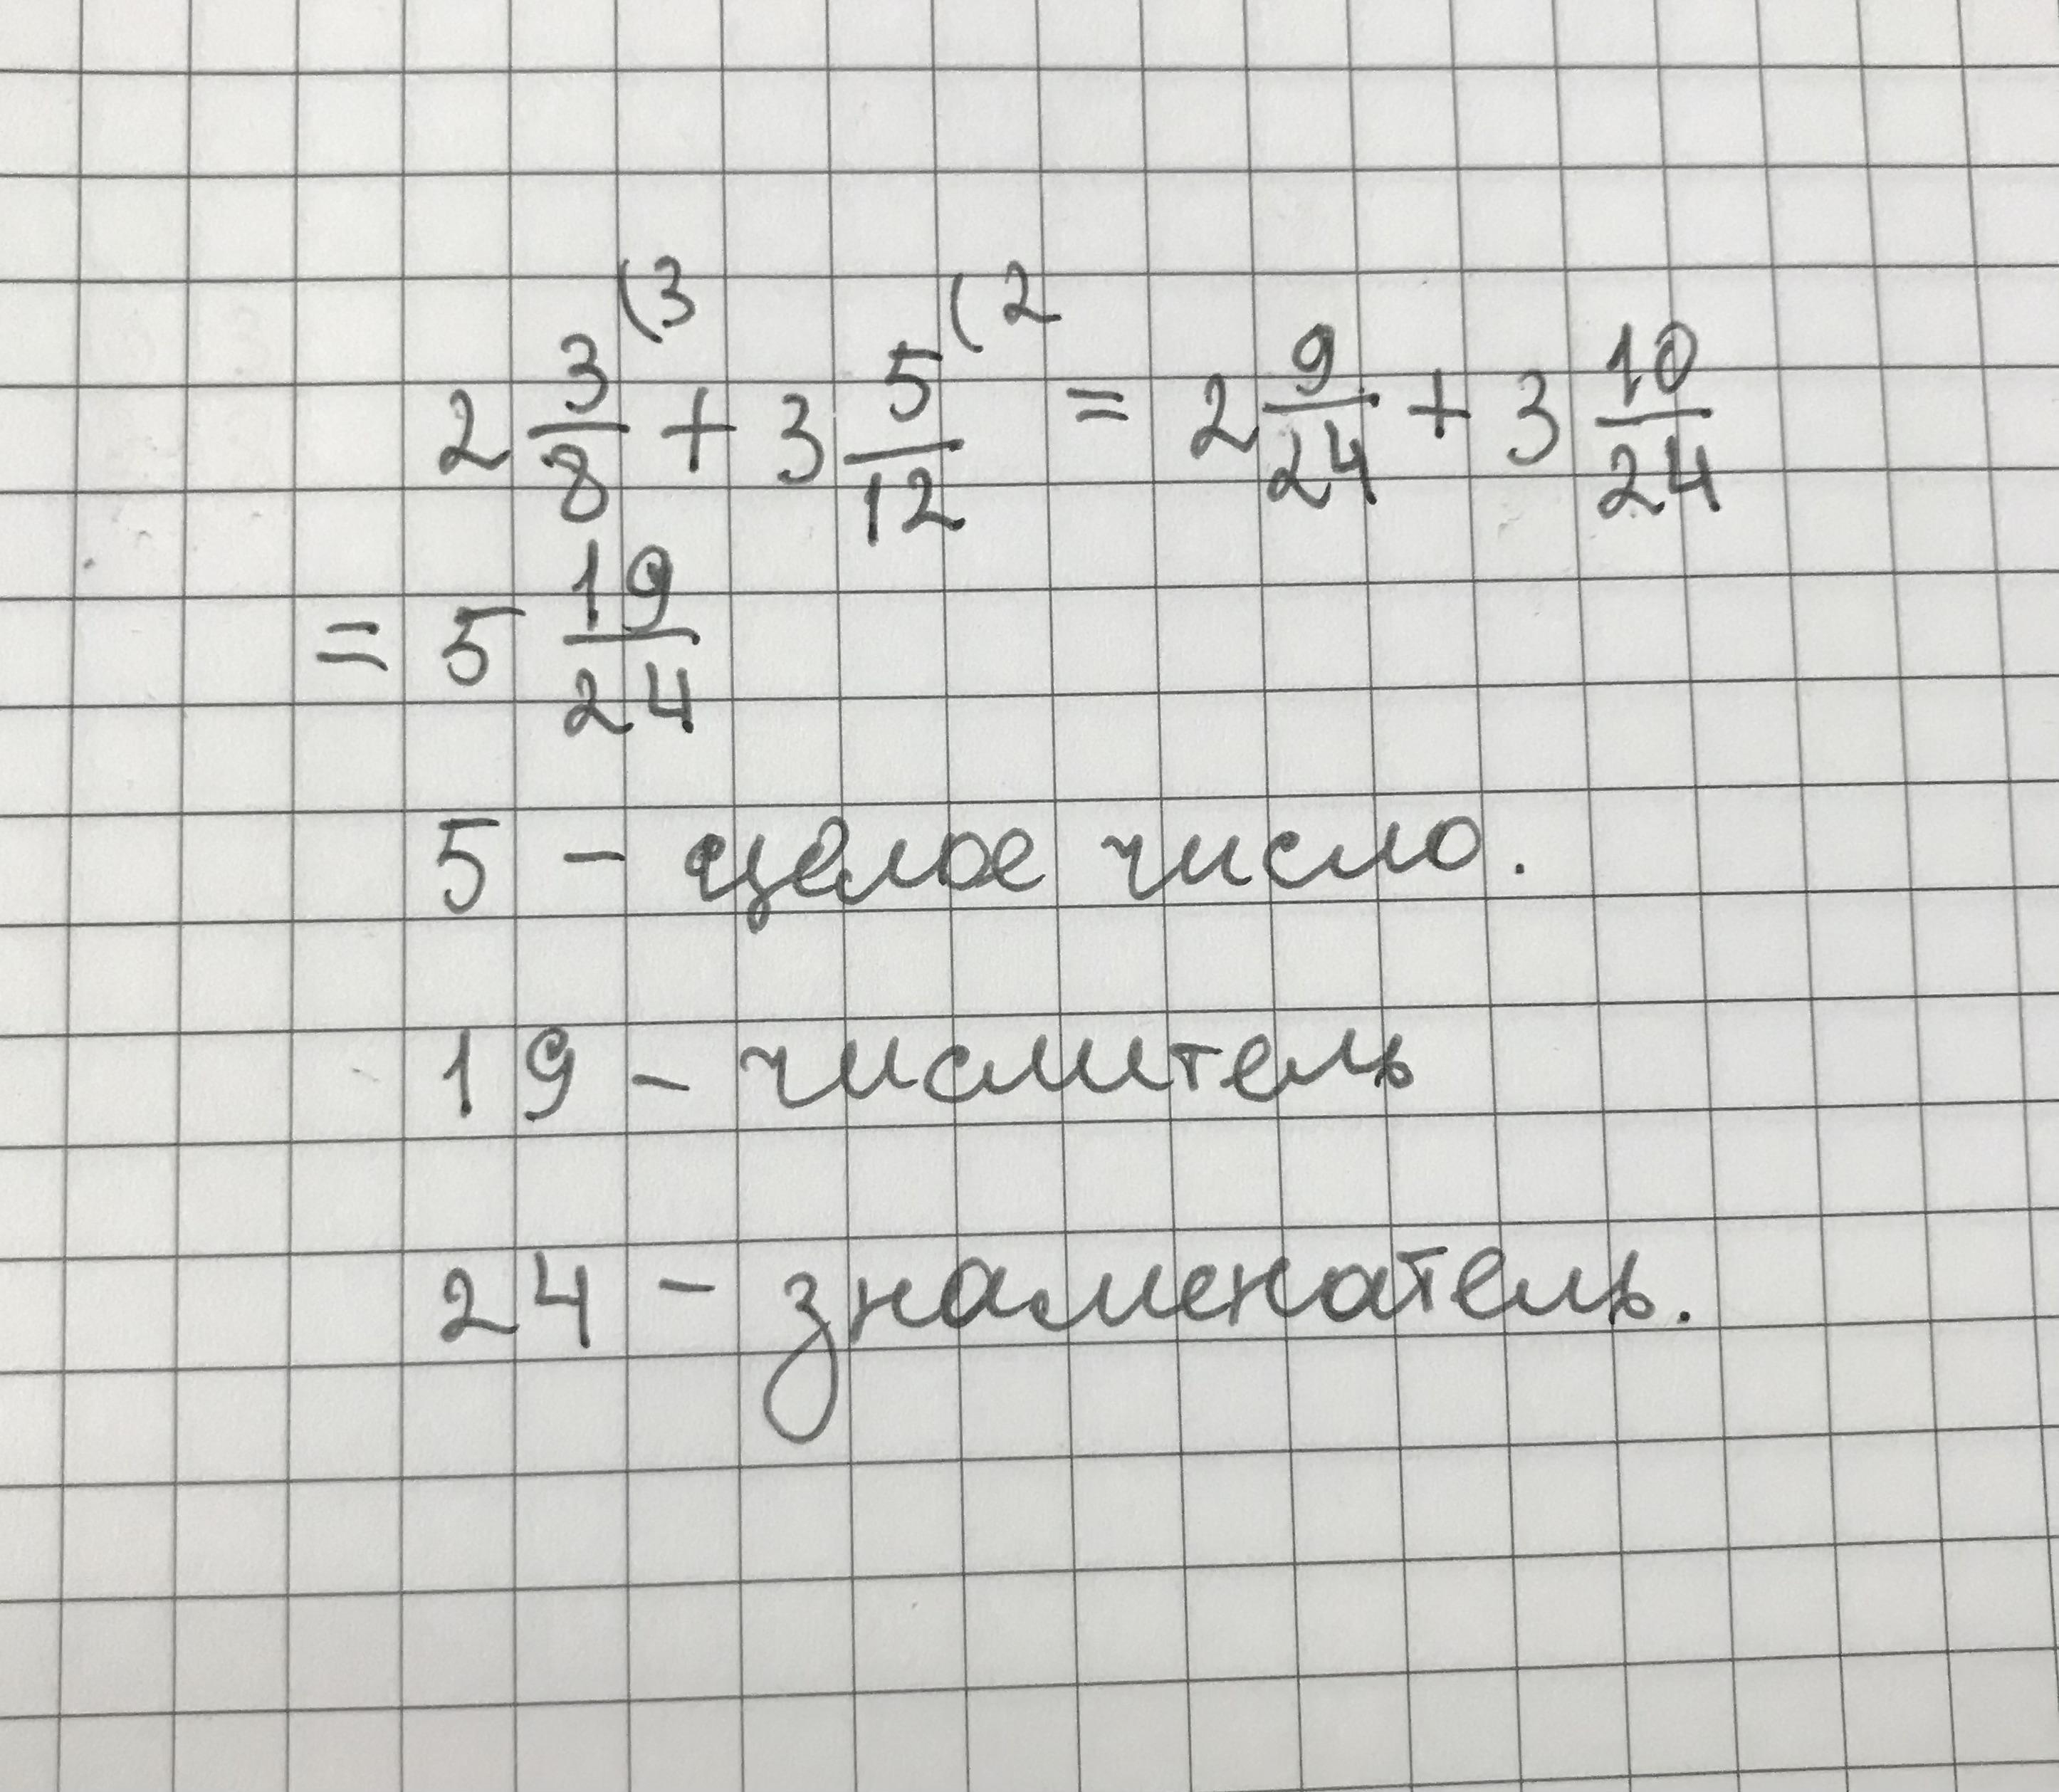 2 3/8 (3 + 3 5/12 (2 = 2 9/24 + 3 10/24
= 5 19/24
5 - целое число.
19 - числитель
24 - знаменатель.